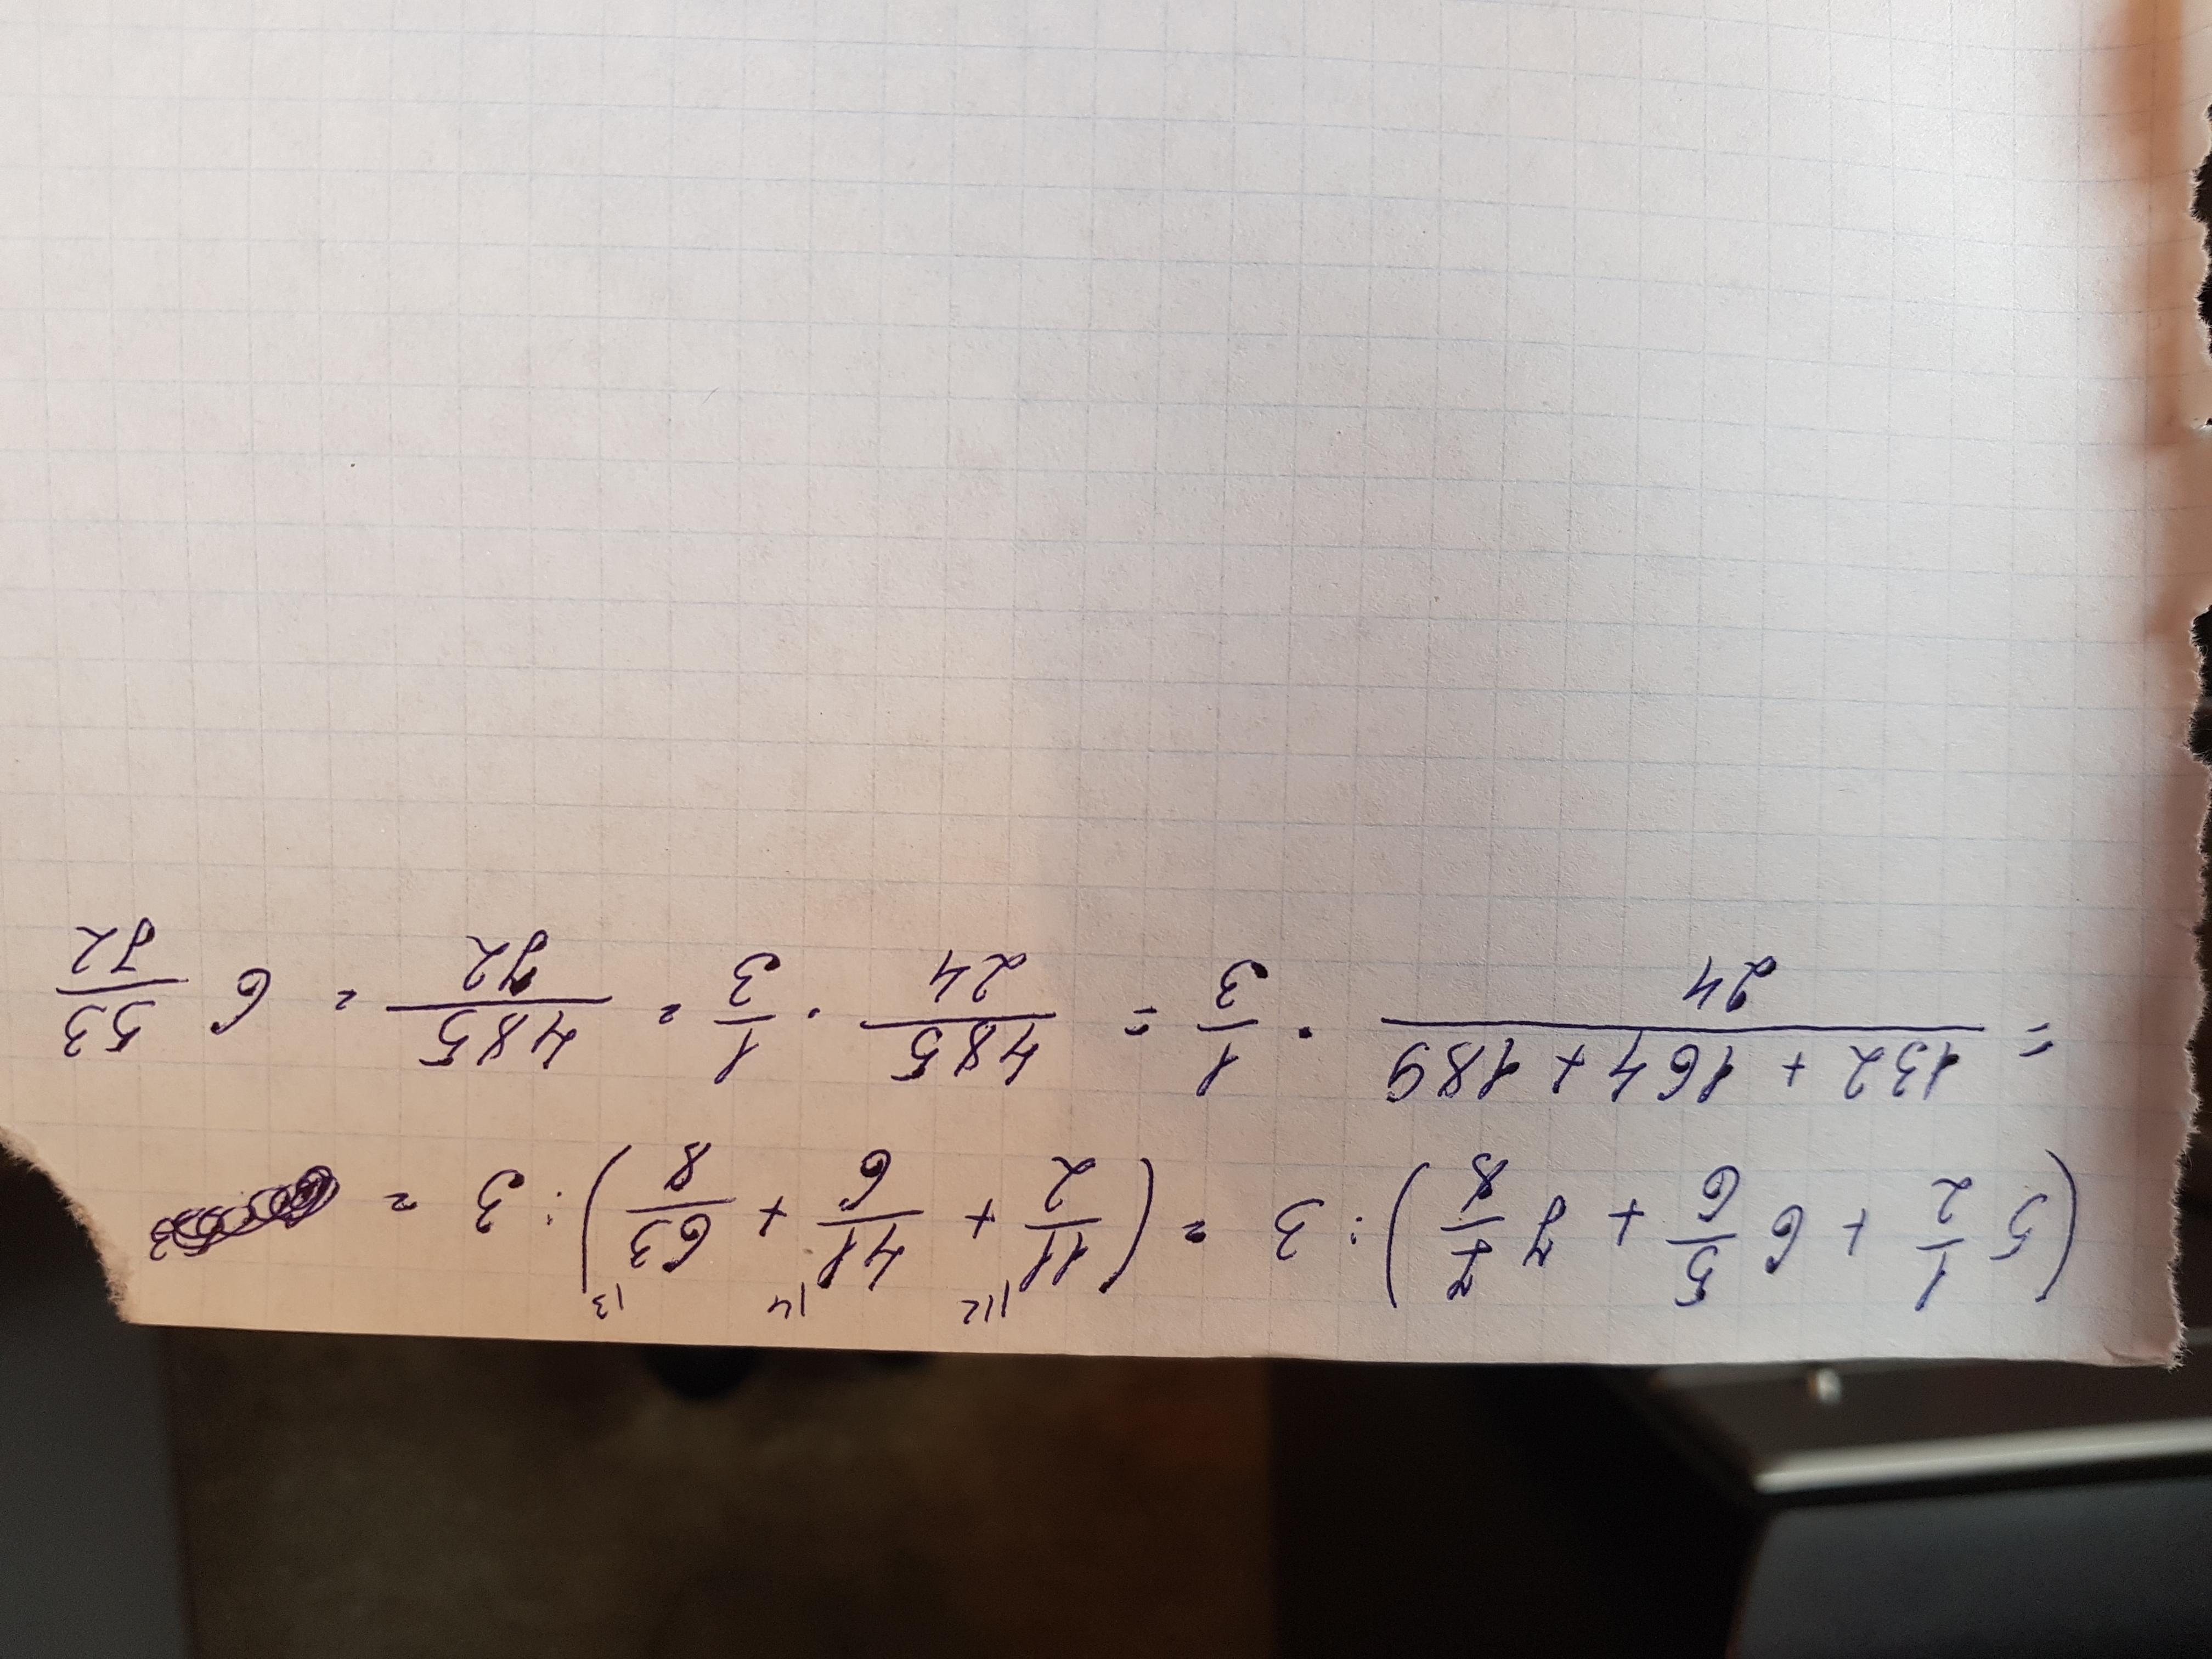 (5 1/2 + 6 5/6 + 7 7/8) : 3 = (11/2 |12 + 41/6 |4 + 63/8 |3) : 3 =
= (132 + 164 + 189)/24 · 1/3 = 485/24 · 1/3 = 485/72 = 6 53/72